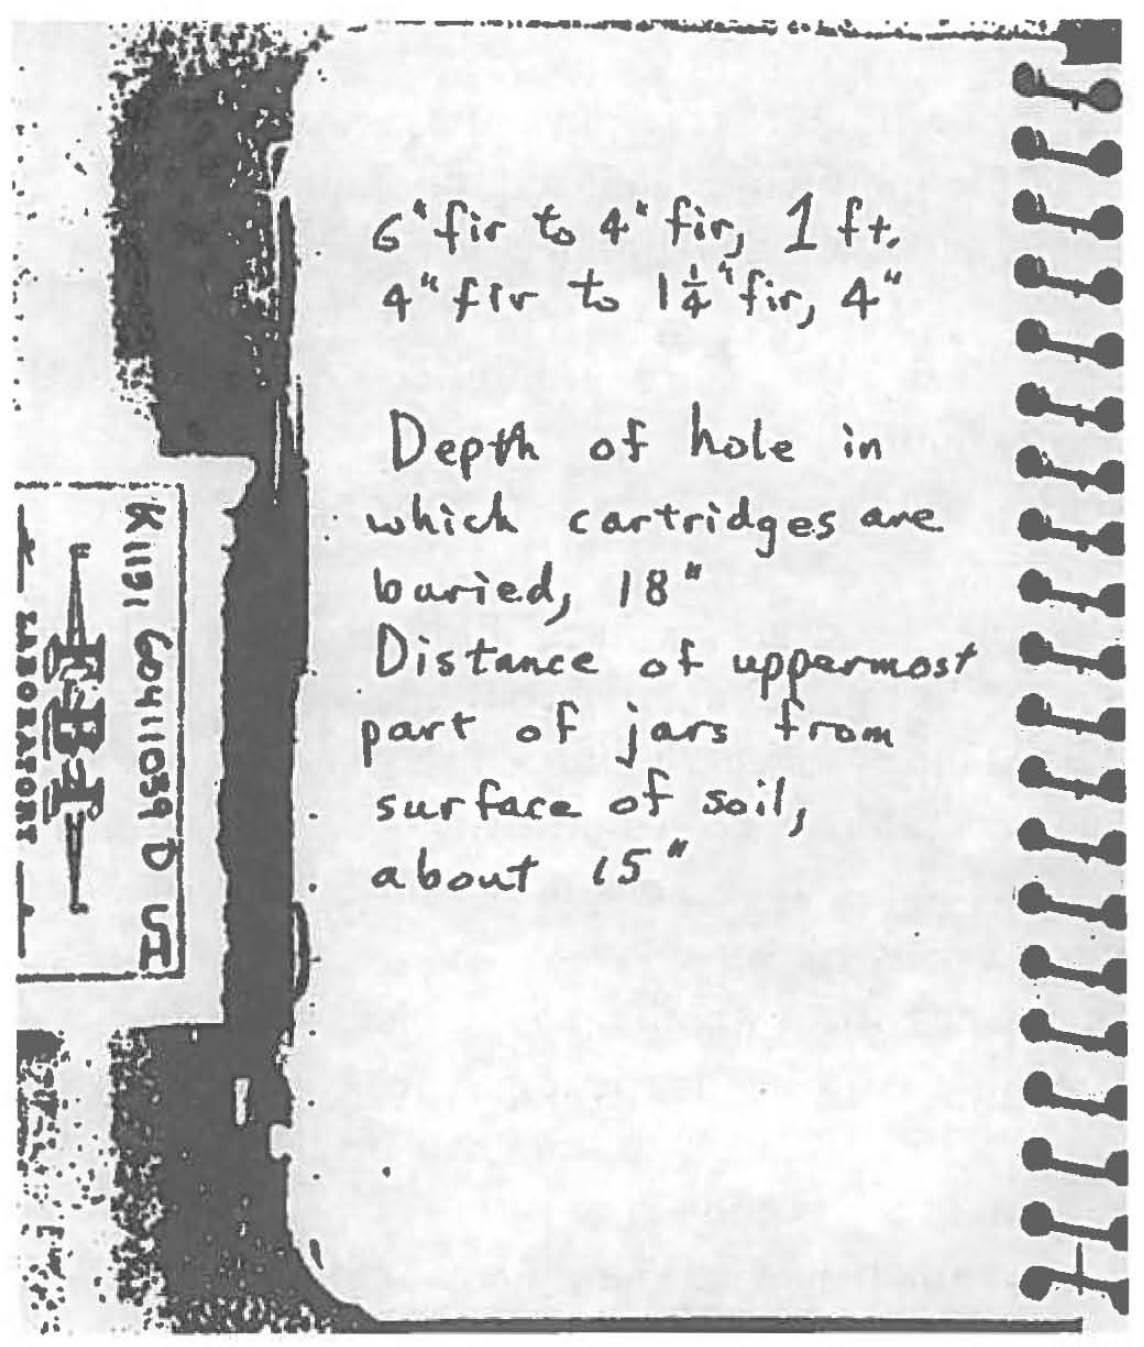 6" fir to 4" fir, 1 ft.
4" fir to 1 1/4" fir, 4"
Depth of hole in
which cartridges are
buried, 18"
Distance of uppermost
part of jars from
surface of soil,
about 15"
K1191 60411039 D SH
FBI
LABORATORY